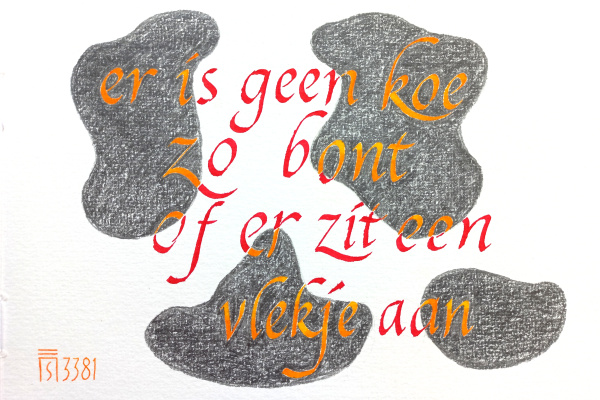 er is geen koe
zo bont
of er zit een
vlekje aan
3381